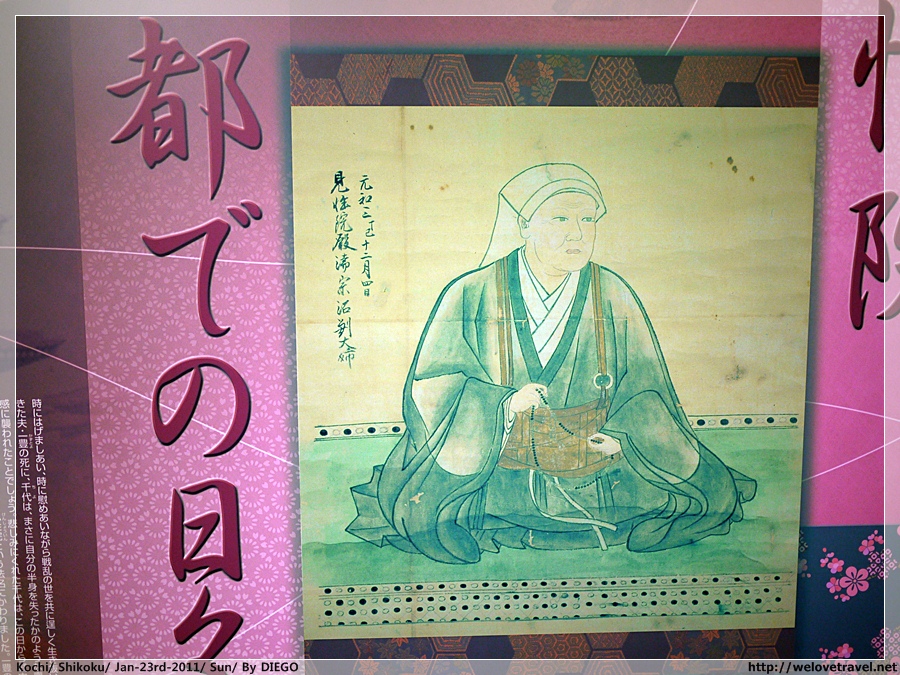 都での日々
性
院
元和三丁巳十二月四日
見性院殿
大姉
時にはげましあい、時に慰めあいながら戦乱の世を共に逞しく生き
きた夫・一豊の死に、千代は、まさに自分の半身を失ったかのよう
感に襲われたことでしょう。悲しみにくれた千代は、この日から
Kochi/ Shikoku/ Jan-23rd-2011/ Sun/ By DIEGO
http://welovetravel.net